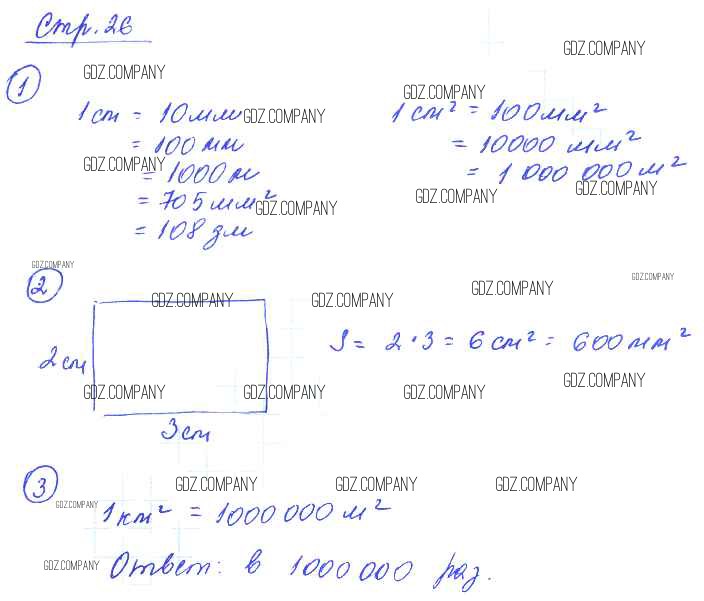 Стр. 26
GDZ.COMPANY
GDZ.COMPANY
1
GDZ.COMPANY
1 см = 10 мм
GDZ.COMPANY
1 см² = 100 мм²
= 100 мм
= 10000 мм²
GDZ.COMPANY
= 1000 м
= 1 000 000 м²
GDZ.COMPANY
GDZ.COMPANY
= 705 мм²
GDZ.COMPANY
= 108 дм
GDZ.COMPANY
2
GDZ.COMPANY
GDZ.COMPANY
GDZ.COMPANY
GDZ.COMPANY
2 см
S = 2 · 3 = 6 см² = 600 мм²
GDZ.COMPANY
GDZ.COMPANY
GDZ.COMPANY
GDZ.COMPANY
3 см
3
GDZ.COMPANY
GDZ.COMPANY
GDZ.COMPANY
GDZ.COMPANY
1 км² = 1000 000 м²
GDZ.COMPANY
Ответ: в 1000 000 раз.